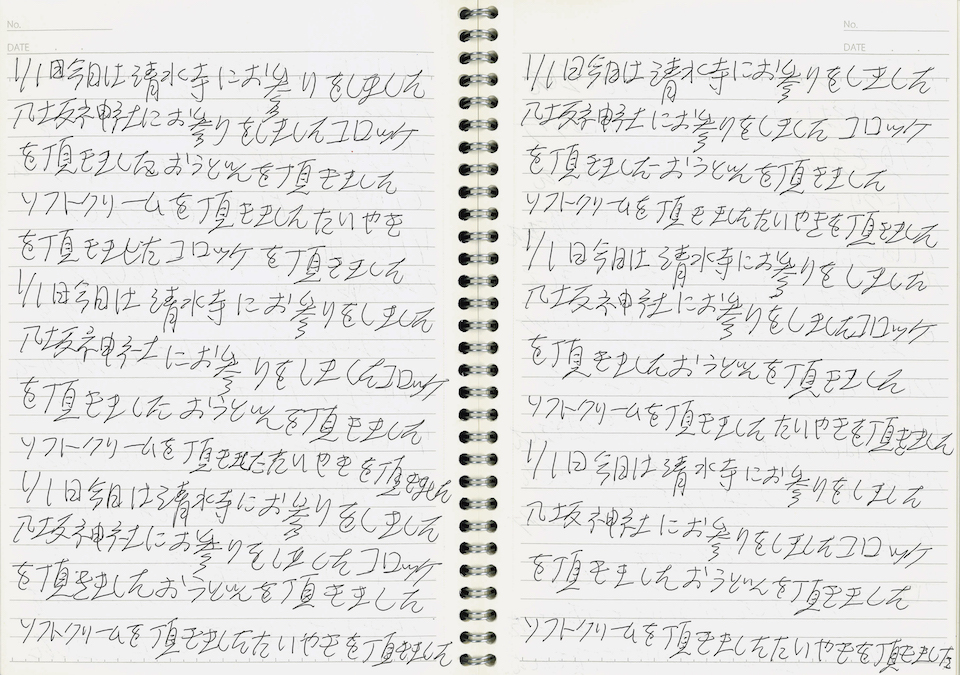 No.
DATE . .
1/1日今日は清水寺にお参りをしました
八坂神社にお参りをしましたコロッケ
を頂きましたおうどんを頂きました
ソフトクリームを頂きましたたいやき
を頂きましたコロッケを頂きました
1/1日今日は清水寺にお参りをしました
八坂神社にお参りをしましたコロッケ
を頂きましたおうどんを頂きました
ソフトクリームを頂きましたたいやきを頂きました
1/1日今日は清水寺にお参りをしました
八坂神社にお参りをしましたコロッケ
を頂きましたおうどんを頂きました
ソフトクリームを頂きましたたいやきを頂きました
No.
DATE . .
1/1日今日は清水寺にお参りをしました
八坂神社にお参りをしましたコロッケ
を頂きましたおうどんを頂きました
ソフトクリームを頂きましたたいやきを頂きました
1/1日今日は清水寺にお参りをしました
八坂神社にお参りをしましたコロッケ
を頂きましたおうどんを頂きました
ソフトクリームを頂きましたたいやきを頂きました
1/1日今日は清水寺にお参りをしました
八坂神社にお参りをしましたコロッケ
を頂きましたおうどんを頂きました
ソフトクリームを頂きましたたいやきを頂きました